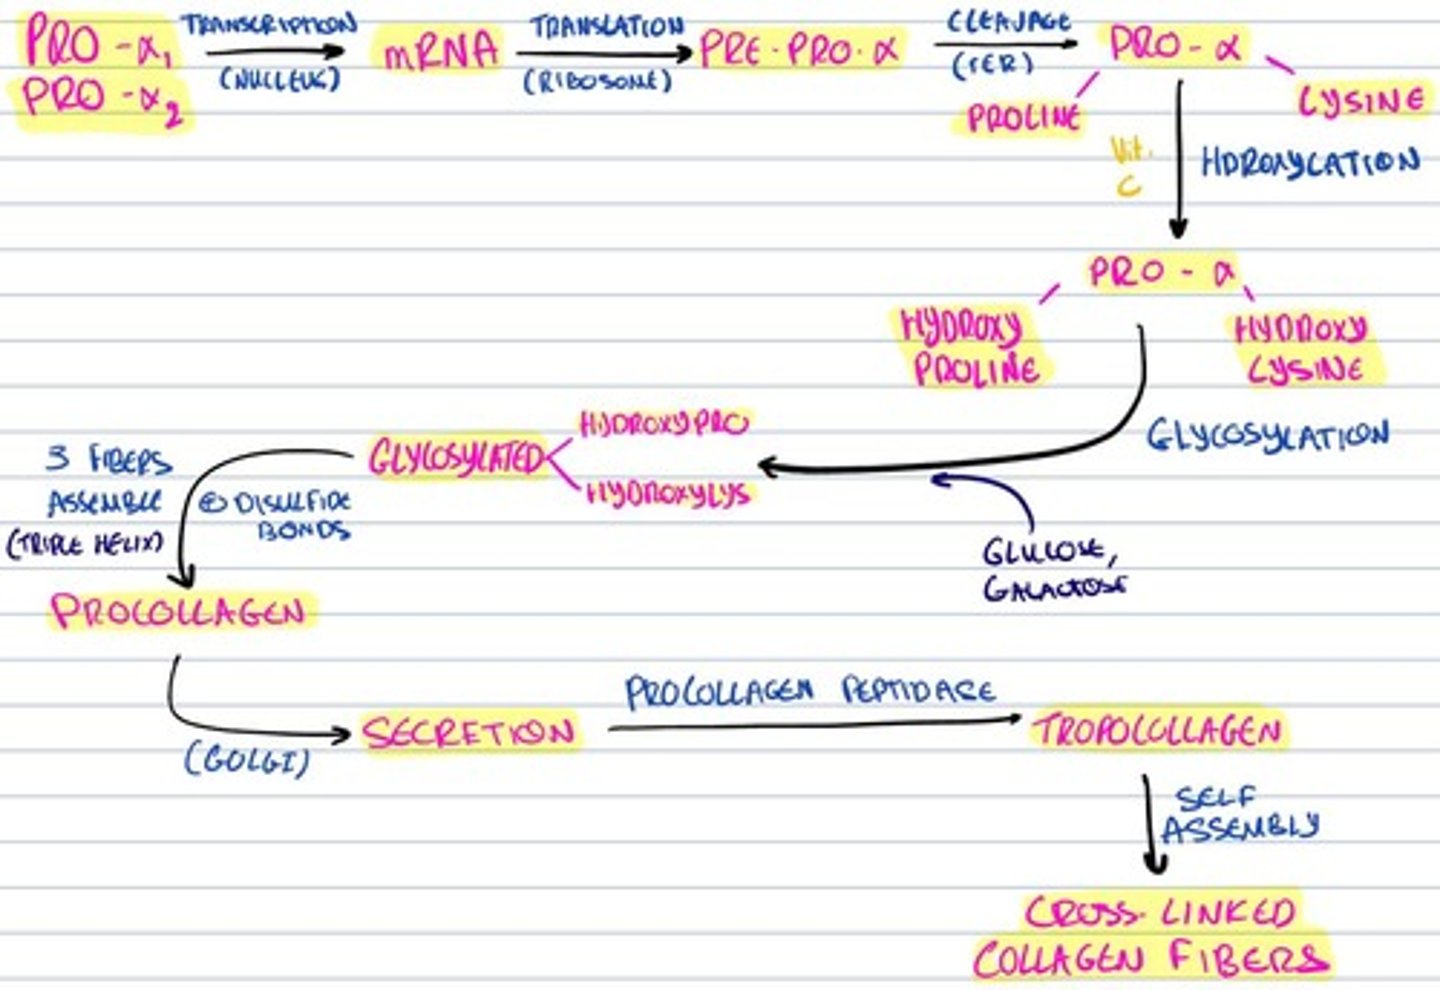 PRO-α1
PRO-α2
TRANSCRIPTION
(NUCLEUS)
mRNA
TRANSLATION
(RIBOSOME)
PRE-PRO-α
CLEAVAGE
(rER)
PRO-α
PROLINE
LYSINE
Vit.
C
HDROXYLATION
PRO-α
HYDROXY
PROLINE
HYDROXY
LYSINE
GLYCOSYLATION
GLUCOSE,
GALACTOSE
GLYCOSYLATED
HYDROXYPRO
HYDROXYLYS
3 FIBERS
ASSEMBLE
(TRIPLE HELIX)
DISULFIDE
BONDS
PROCOLLAGEN
(GOLGI)
SECRETION
PROCOLLAGEN PEPTIDASE
TROPOCOLLAGEN
SELF
ASSEMBLY
CROSS-LINKED
COLLAGEN FIBERS